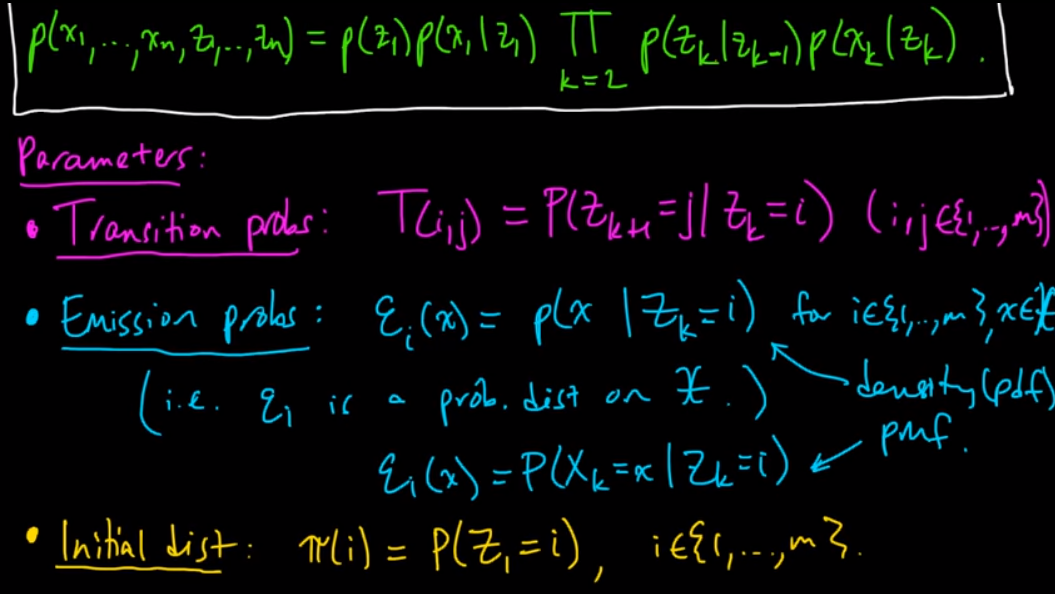 p(x₁,...,xₙ,z₁,...,zₙ) = p(z₁)p(x₁|z₁) ∏ p(zₖ|zₖ₋₁)p(xₖ|zₖ).
k=2
Parameters:
• Transition probs: T(i,j) = P(Zₖ₊₁=j|Zₖ=i) (i,j∈{1,...,m})
• Emission probs: εᵢ(x) = p(x|Zₖ=i) for i∈{1,...,m}, x∈𝒳
(i.e. εᵢ is a prob. dist on 𝒳.) density (pdf)
εᵢ(x) = P(Xₖ=x|Zₖ=i) pmf.
• Initial dist: π(i) = P(Z₁=i), i∈{1,...,m}.